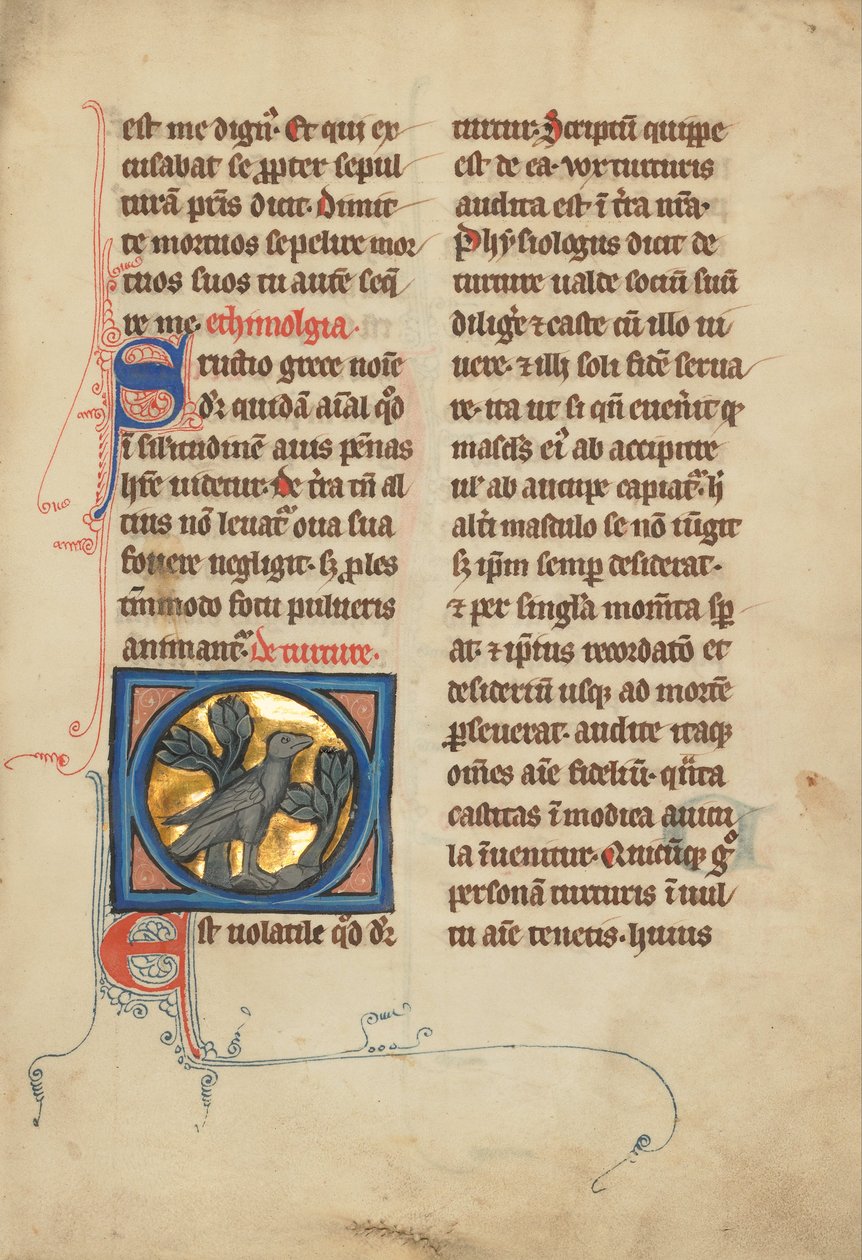 est me dignꝰ. Et qui ex
cusabat se ꝓpter sepul
turā pr̄is dicit. Dimit
te mortuos sepelire mor
tuos suos tu autē seq̄
re me. ethimolgia.
Structio grece noīe
dr̄ quidā aīal qd̓
ī sil'itudinē auis pēnas
hr̄e uidetur. de t̄ra tn̄ al
tius nō leuat᷑ oua sua
fouere negligit. sꝫ ꝓles
tm̄modo fotu pulueris
animant᷑. De turture.
Est uolatile qd̓ dr̄
turtur. Scriptū quippe
est de ea. vox turturis
audita est ī t̄ra nr̄a.
Phẏsiologus dicit de
turture ualde sociū suū
dilig̓e ⁊ caste cū illo ui
uere. ⁊ illi soli fidē serua
re. ita ut si qn̄ euen̓it ꝙ
mascl's ei᷑ ab accipitre
ul' ab aucupe capiat᷑. h̄
alt̓i masculo se nō iūgit
sꝫ ip̄m semꝑ desiderat.
⁊ per singl'a mom̄ta sꝑ
at. ⁊ ip̄ius recordatō et
desideriū usqꝫ ad mortē
ꝑseuerat. audite itaqꝫ
om̄es aīe fideliū. qn̄ta
castitas ī modica auicu
la īuenitur. Quicūqꝫ g̊
personā turturis ī uul
tu aīe tenetis. huius